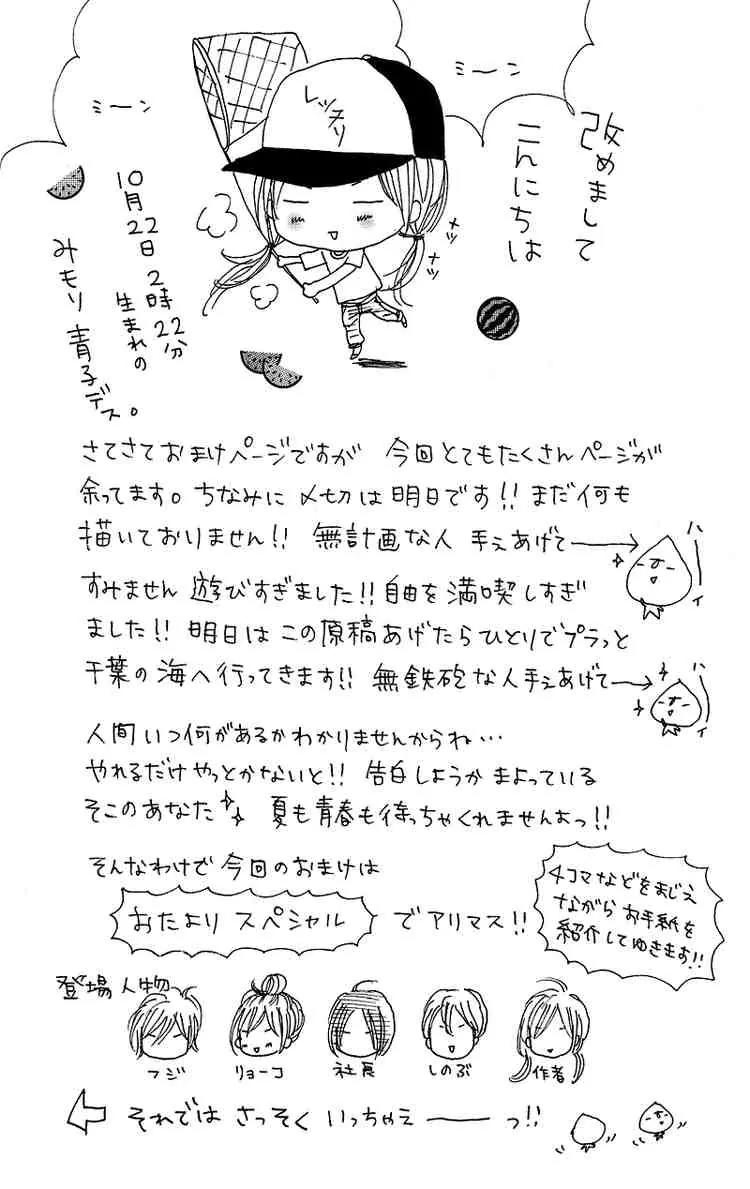 改めまして
こんにちは
ミーン
ミーン
レッスリ
ナッ
ナッ
10月22日 2時22分
生まれの
みもり青子デス。
さてさておまけページですが 今回とてもたくさんページが
余ってます。ちなみに〆切は明日です!! まだ何も
描いておりません!! 無計画な人 手ぇあげて→
ハーイ
すみません 遊びすぎました!! 自由を満喫しすぎ
ました!! 明日はこの原稿あげたらひとりでプラっと
千葉の海へ行ってきます!! 無鉄砲な人手ぇあげて→
ハーイ
人間いつ何があるかわかりませんからね…
やれるだけやっとかないと!! 告白しようか まよっている
そこのあなた 夏も青春も待っちゃくれませんよっ!!
そんなわけで 今回のおまけは
おたより スペシャル でアリマス!!
4コマなどをまじえ
ながら お手紙を
紹介してゆきます!!
登場人物
フジ
リョーコ
社長
しのぶ
作者
それでは さっそく いっちゃえ ―― っ!!